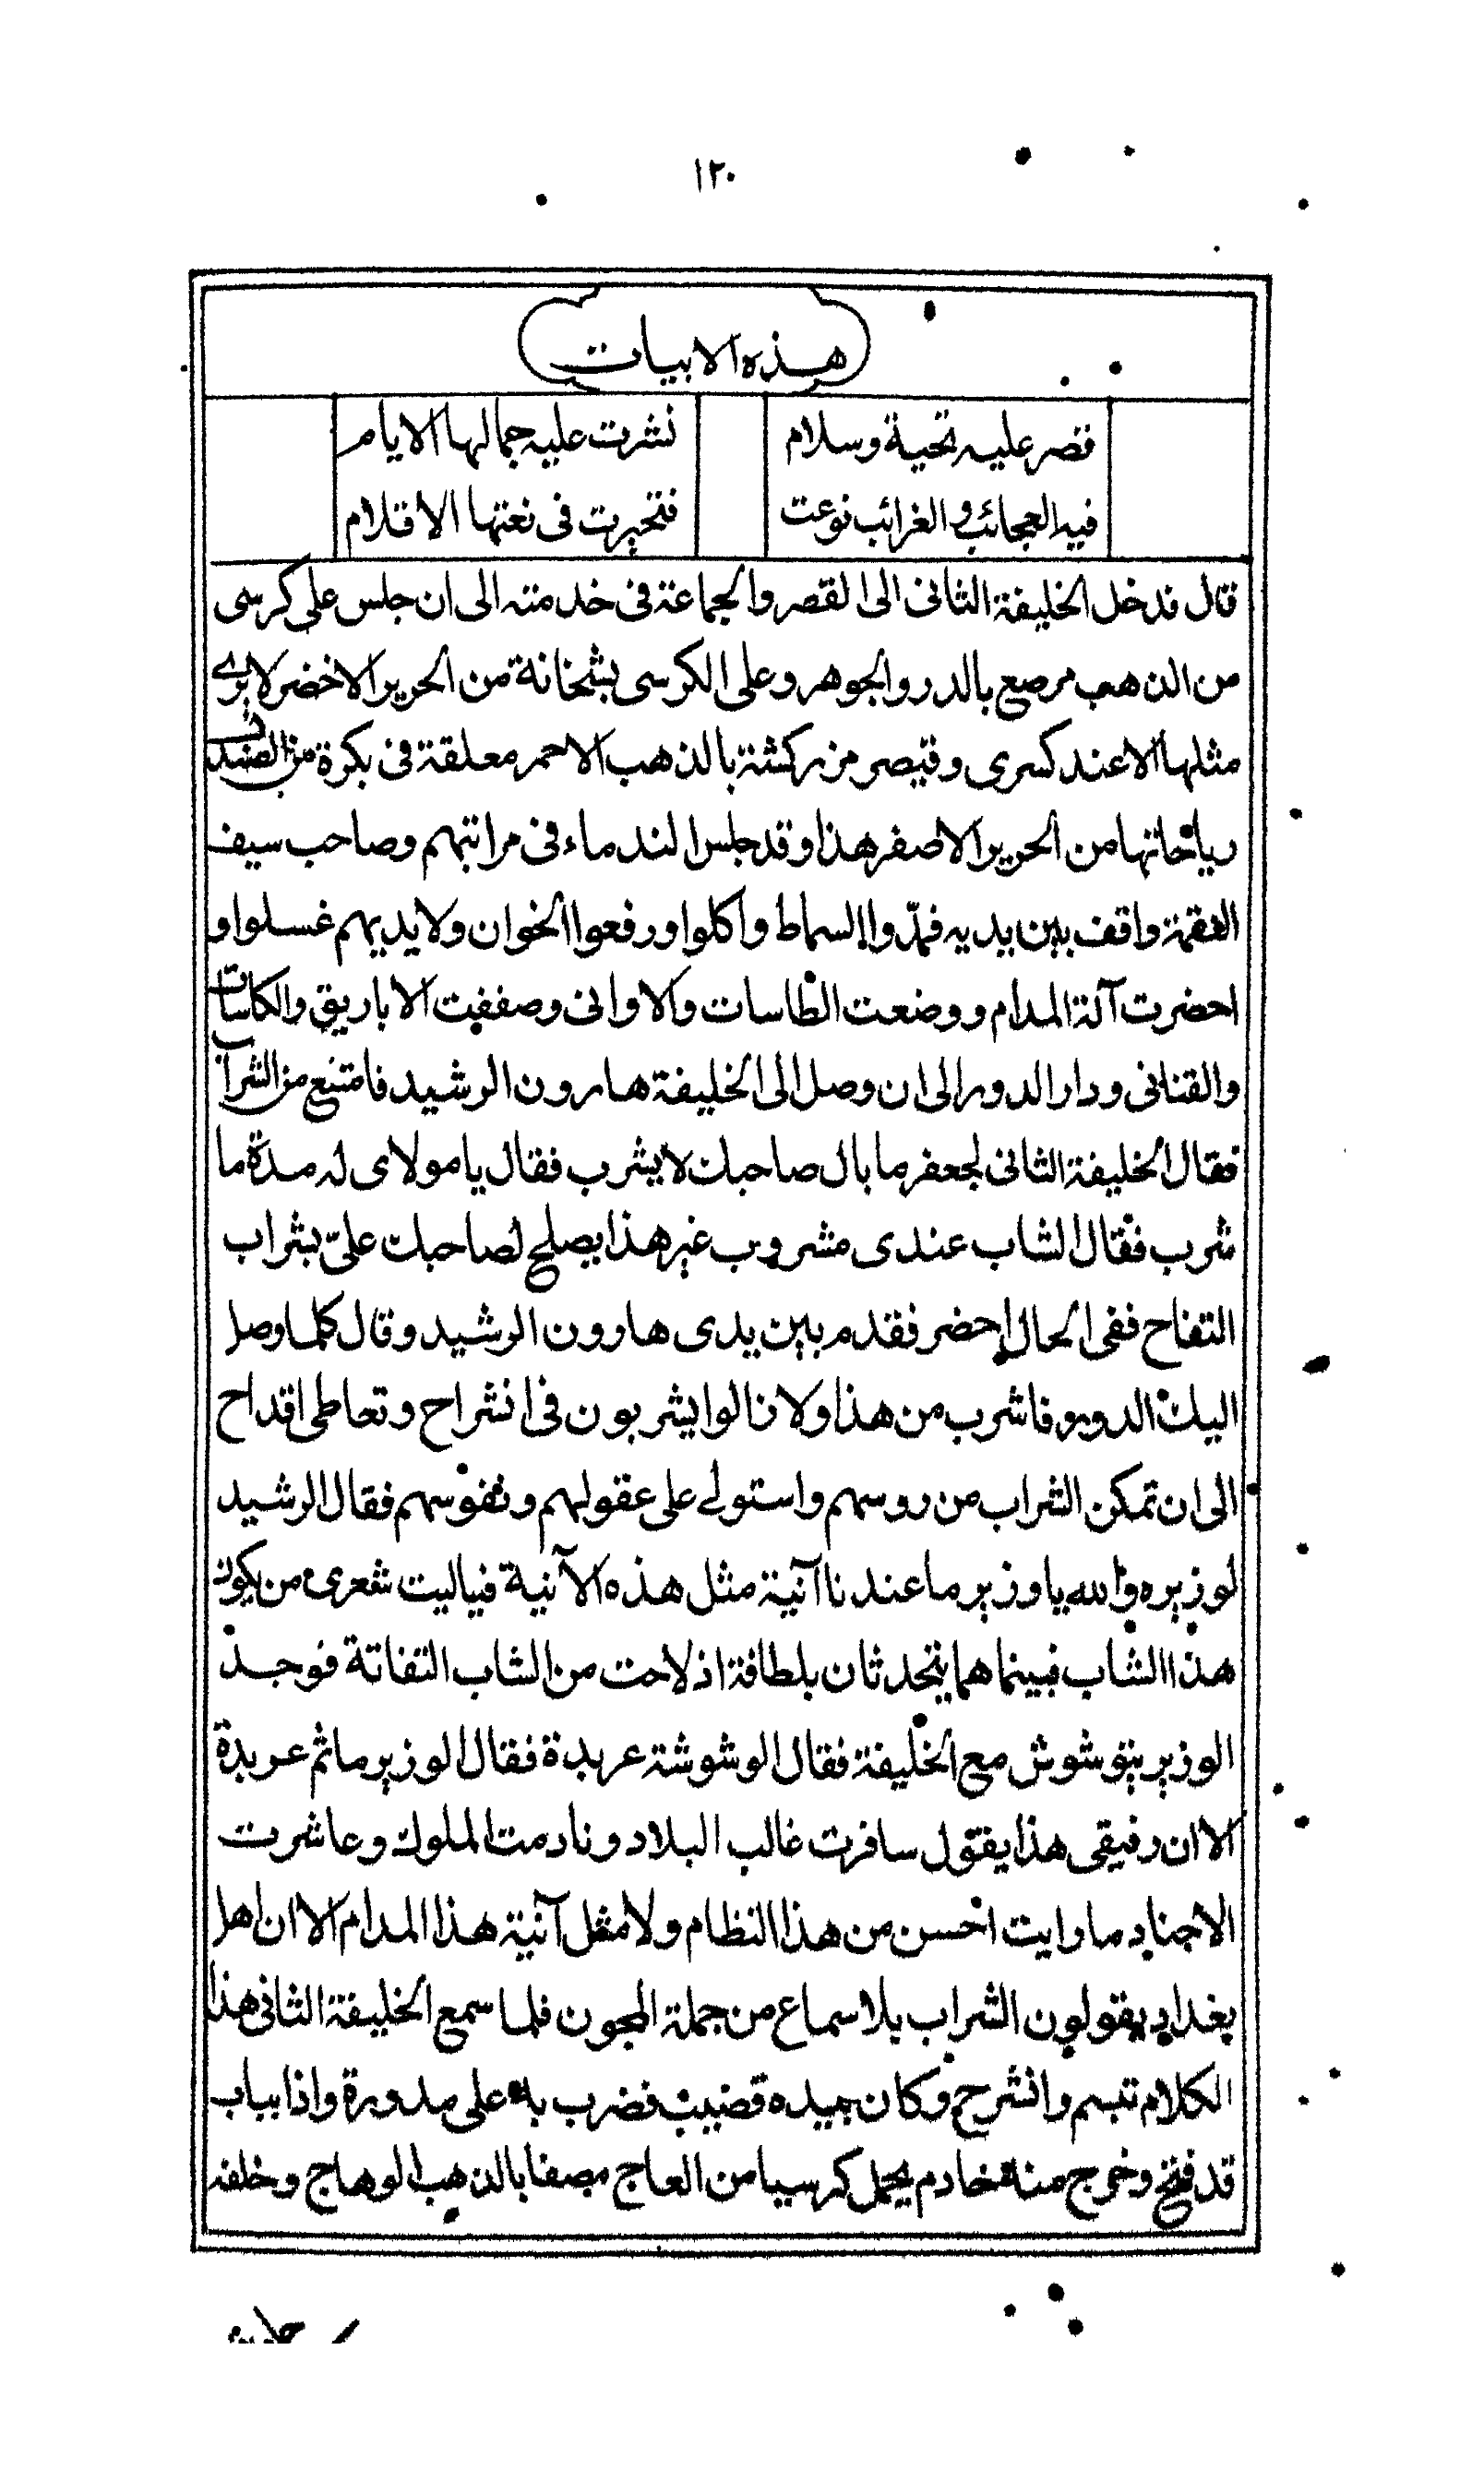 ١٢٠
هذه الابيات
قصر عليه تحية وسلام نشرت عليه جمالها الايام
فيه العجائب والغرائب نوعت فتحيرت فى نعتها الاقلام
قال فدخل الخليفة الثانى الى القصر والجماعة فى خدمته الى ان جلس على كرسى
من الذهب مرصع بالدر والجوهر وعلى الكرسى بشخانة من الحرير الاخضر لا يرے
مثلها الا عند كسرى وقيصر مزركشة بالذهب الاحمر معلقة فى بكرة من الصندل
من الحرير الاصفر هذا وقد جلس الندماء فى مراتبهم وصاحب سيف
النقمة واقف بين يديه فمدّوا السماط واكلوا ورفعوا الخوان ولايديهم غسلوا و
احضرت آلة المدام ووضعت الطاسات والاوانى وصففت الاباريق والكاسات
والقنانى ودار الدور الى ان وصل الى الخليفة هارون الرشيد فامتنع من الشراب
فقال الخليفة الثانى لجعفر ما بال صاحبك لا يشرب فقال يا مولاى له مدة ما
شرب فقال الشاب عندى مشروب غير هذا يصلح لصاحبك علىّ بشراب
التفاح ففى الحال احضر فقدم بين يدى هارون الرشيد وقال كلما وصل
اليك الدور فاشرب من هذا ولا زالوا يشربون فى انشراح وتعاطى اقداح
الى ان تمكن الشراب من روسهم واستولے على عقولهم ونفوسهم فقال الرشيد
لوزيره والله يا وزير ما عندنا آنية مثل هذه الآنية فياليت شعرى من يكون
هذا الشاب فبينما هما يتحدثان بلطافة اذ لاحت من الشاب التفاتة فوجد
الوزير يتوشوش مع الخليفة فقال الوشوشة عربدة فقال الوزير ما ثم عربدة
الا ان رفيقى هذا يقول سافرت غالب البلاد ونادمت الملوك وعاشرت
الاجناد ما رايت احسن من هذا النظام ولا مثل آنية هذا المدام الا ان اهل
بغداد يقولون الشراب بلا سماع من جملة المجون فلما سمع الخليفة الثانى هذا
الكلام تبسم وانشرح وكان بيده قضيب فضرب به على مدورة واذا بباب
قد فتح وخرج منه خادم يحمل كرسيا من العاج مصفا بالذهب الوهاج وخلفه